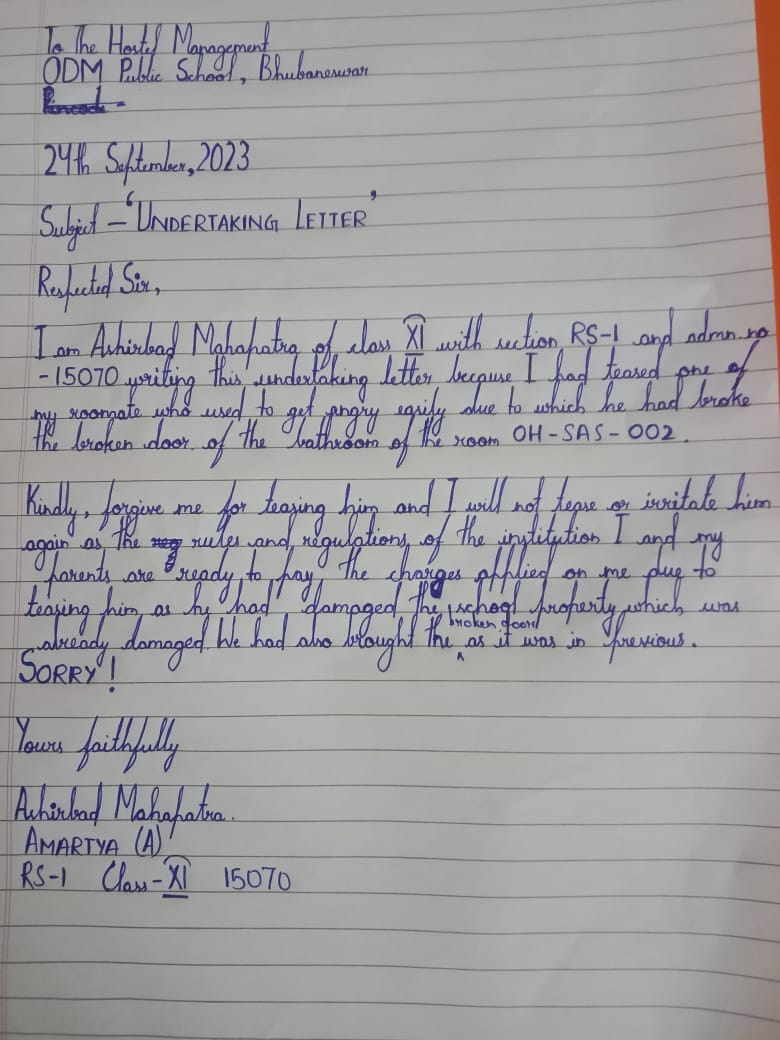 To The Hostel Management
ODM Public School, Bhubaneswar
Pincode -
24th September, 2023
Subject - 'UNDERTAKING LETTER'
Respected Sir,
I am Ashirbad Mahapatra of class XI with section RS-1 and admn. no
- 15070 writing this undertaking letter because I had teased one of
my roomate who used to get angry easily due to which he had broke
the broken door of the bathroom of the room OH-SAS-002.
Kindly, forgive me for teasing him and I will not tease or irritate him
again as the reg rules and regulations of the institution I and my
parents are ready to pay the charges applied on me due to
teasing him as he had damaged the school property which was
already damaged. We had also brought the broken door as it was in previous.
SORRY!
Yours faithfully
Ashirbad Mahapatra.
AMARTYA (A)
RS-1 Class-XI 15070